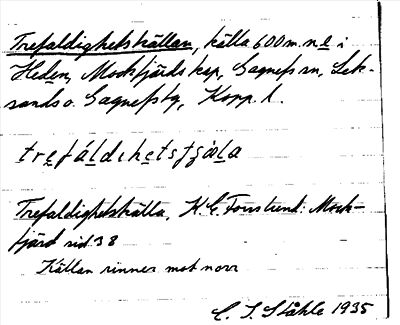 Trefaldighetskällan, källa 600 m. n.e i
Heden, Mockfjärds kap, Gagnefs sn, Lek-
sands o. Gagnefs tg, Kopp. l.
trefáldehetstʃäla
Trefaldighetskälla, K.G. Forstrend: Mock-
fjärd sid 38
Källan rinner mot norr
C. I. Ståhle 1935